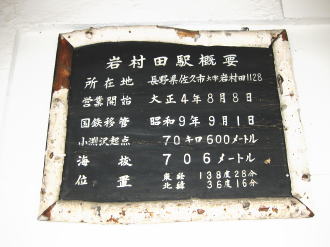 岩村田駅概要
所在地 長野県佐久市大字岩村田1128
営業開始 大正4年8月8日
国鉄移管 昭和9年9月1日
小淵沢起点 70キロ600メートル
海抜 706メートル
位置 東経 138度28分
北緯 36度16分